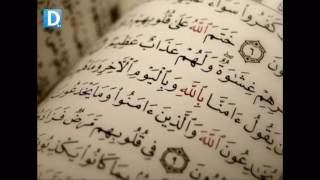 D
كَفَرُوا سَوَاءٌ
خَتَمَ ٱللَّهُ عَلَىٰ قُلُوبِهِمْ
غِشَٰوَةٌ وَلَهُمْ عَذَابٌ عَظِيمٌ
يَقُولُ ءَامَنَّا بِٱللَّهِ وَبِٱلْيَوْمِ ٱلْأَخِرِ وَمَا
يُخَٰدِعُونَ ٱللَّهَ وَٱلَّذِينَ ءَامَنُوا وَمَا يَخْدَعُونَ
فِي قُلُوبِهِم مَّرَضٌ فَزَادَ
بِمَا كَانُوا يَكْذِبُونَ